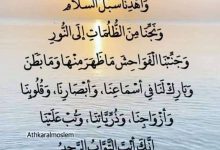 وَاهْدِنَا سُبُلَ السَّلَامِ
وَنَجِّنَا مِنَ الظُّلُمَاتِ إِلَى النُّورِ
وَجَنِّبْنَا الْفَوَاحِشَ مَا ظَهَرَ مِنْهَا وَمَا بَطَنَ
وَبَارِكْ لَنَا فِي أَسْمَاعِنَا، وَأَبْصَارِنَا، وَقُلُوبِنَا
وَأَزْوَاجِنَا، وَذُرِّيَّاتِنَا، وَتُبْ عَلَيْنَا
إِنَّكَ أَنْتَ التَّوَّابُ الرَّحِيمُ
Athkaralmoslem